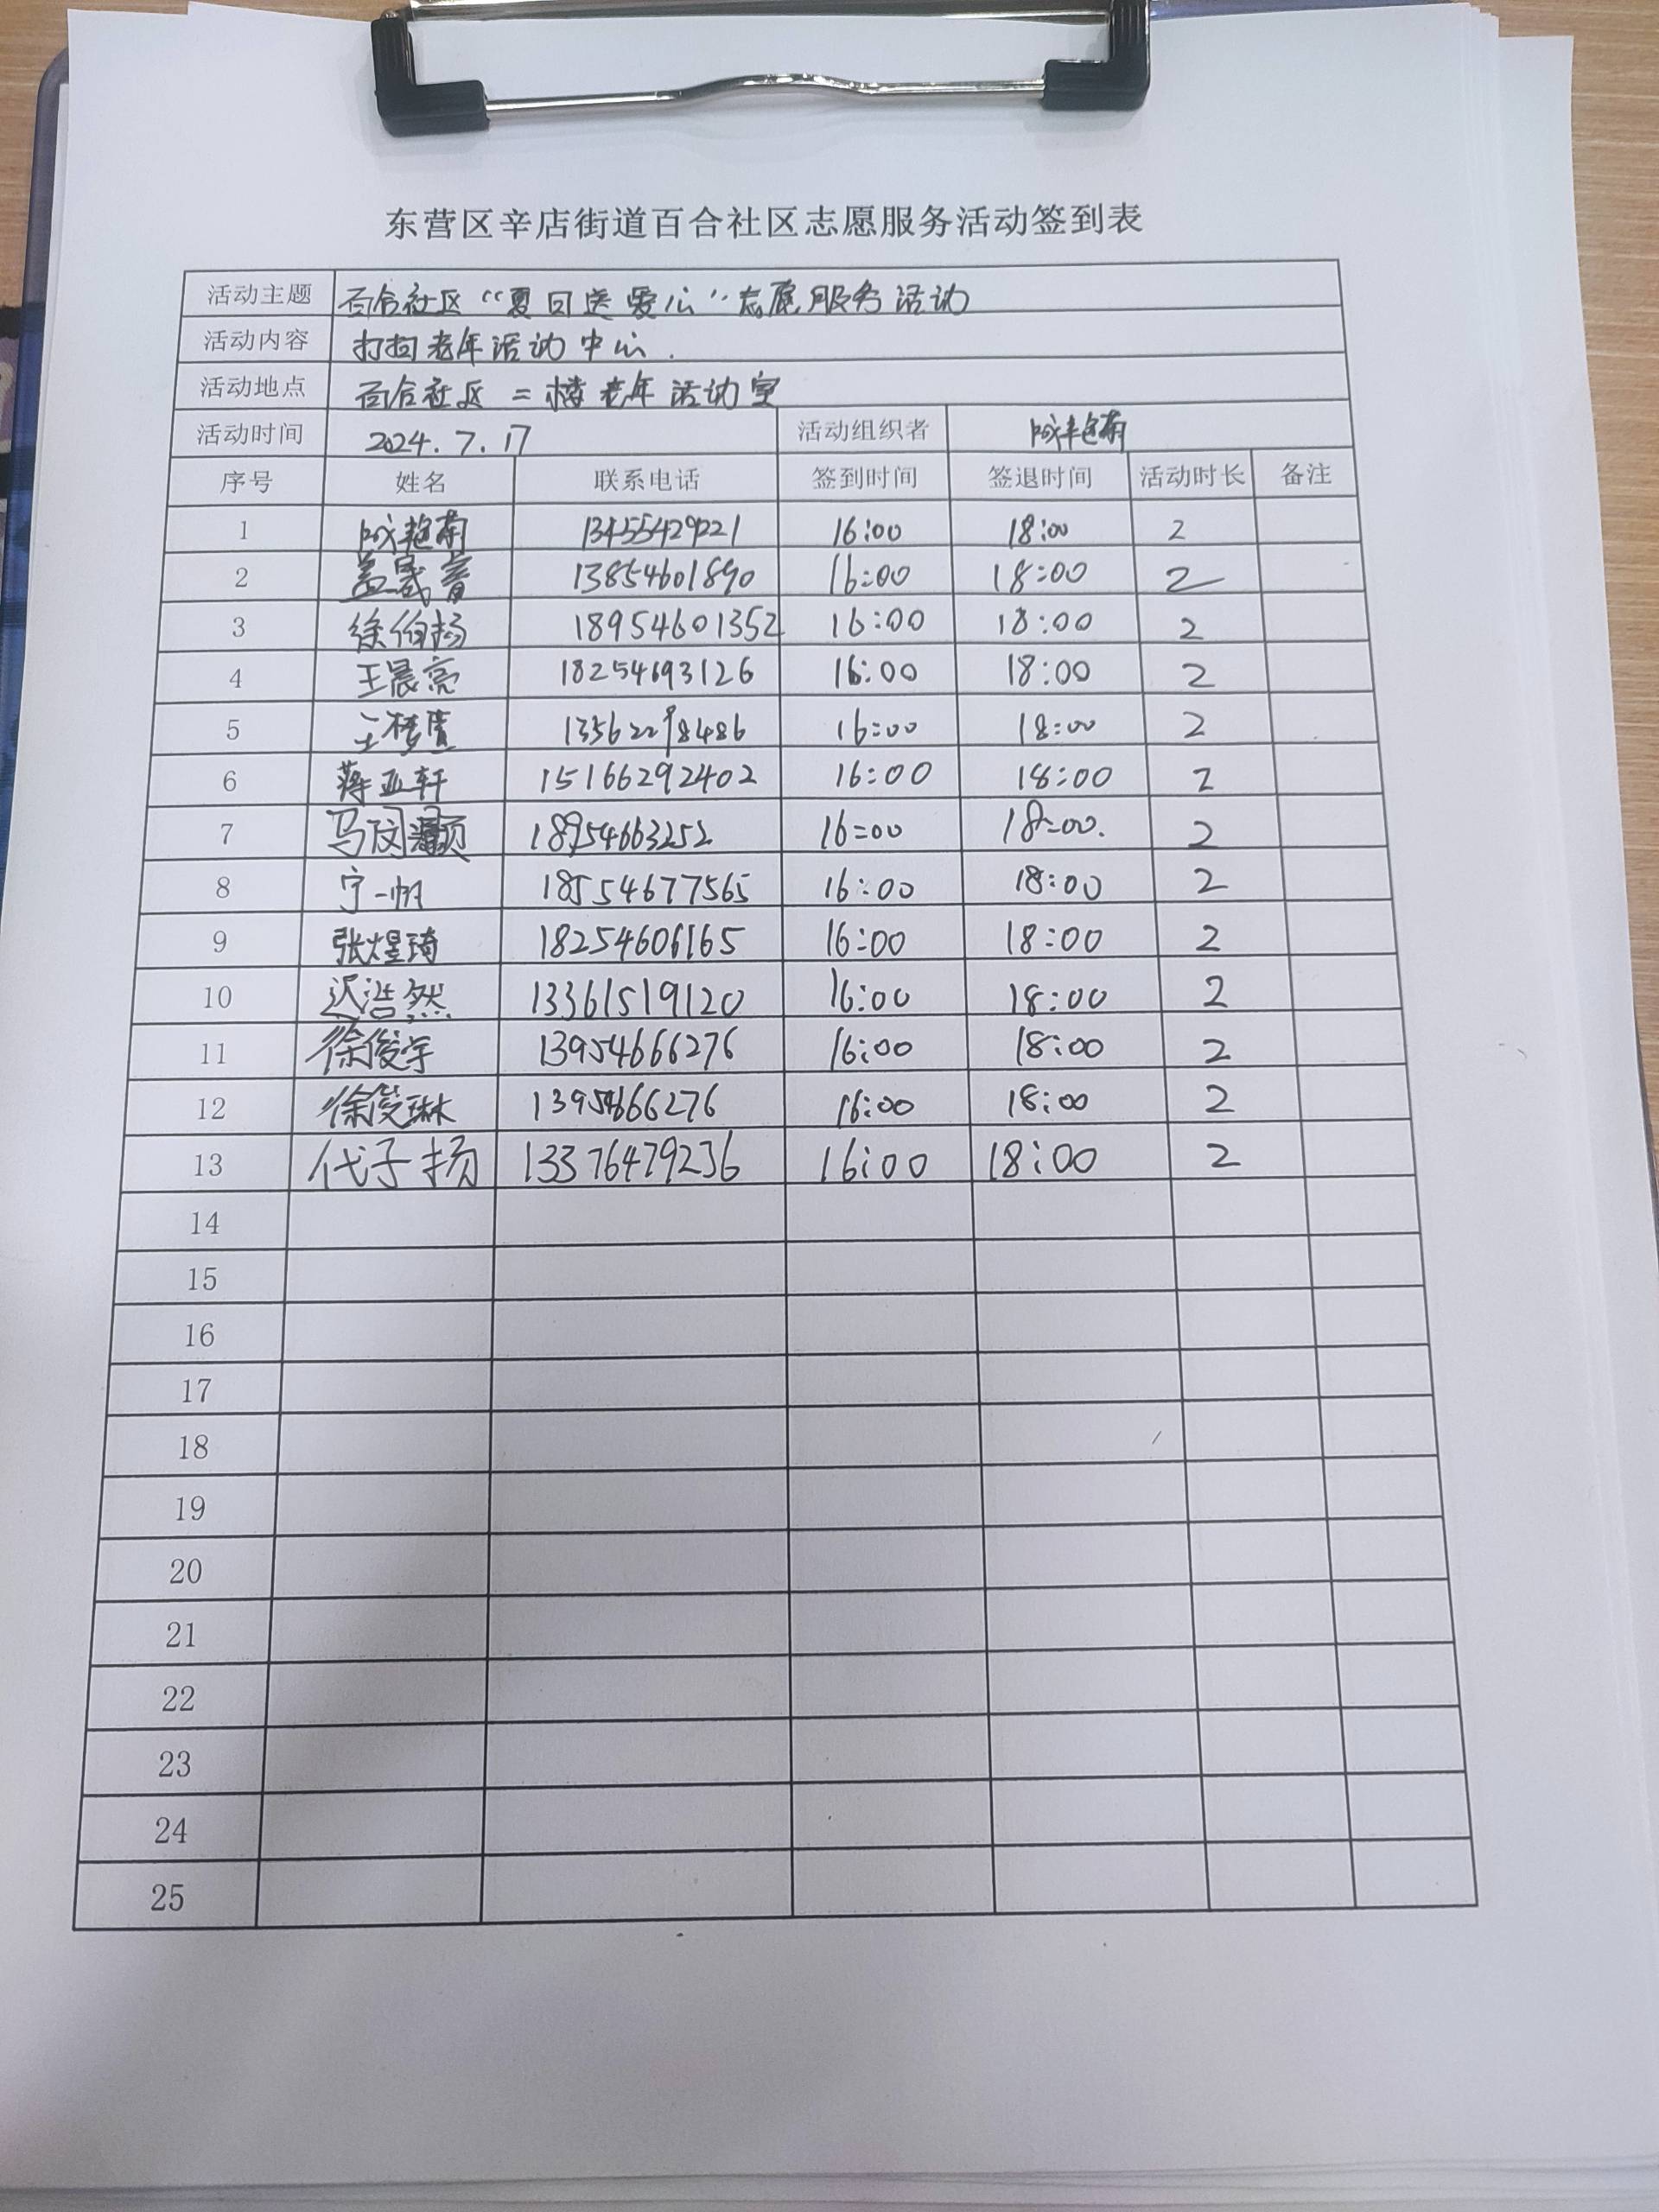 东营区辛店街道百合社区志愿服务活动签到表
活动主题 百合社区“夏日送爱心”志愿服务活动
活动内容 打扫老年活动中心.
活动地点 百合社区二楼老年活动室
活动时间 2024.7.17 活动组织者 艳菊
序号 姓名 联系电话 签到时间 签退时间 活动时长 备注
1 艳菊 13455429221 16:00 18:00 2
2 孟晟睿 13854601890 16:00 18:00 2
3 徐伯扬 18954601352 16:00 18:00 2
4 王晨亮 18254693126 16:00 18:00 2
5 王梦 13562298486 16:00 18:00 2
6 蒋亚轩 15166292402 16:00 18:00 2
7 马 18954663252 16:00 18:00. 2
8 宁一帆 18554677565 16:00 18:00 2
9 张煜琦 18254606165 16:00 18:00 2
10 迟浩然 13361519120 16:00 18:00 2
11 徐俊宇 13954666276 16:00 18:00 2
12 徐琳 13954666276 16:00 18:00 2
13 代子扬 13376479236 16:00 18:00 2
14
15
16
17
18
19
20
21
22
23
24
25